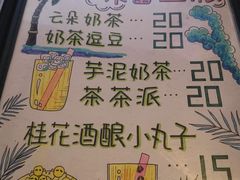 云朵奶茶···20
奶茶逗豆···20
芋泥奶茶···20
茶茶派···20
桂花酒酿小丸子
15